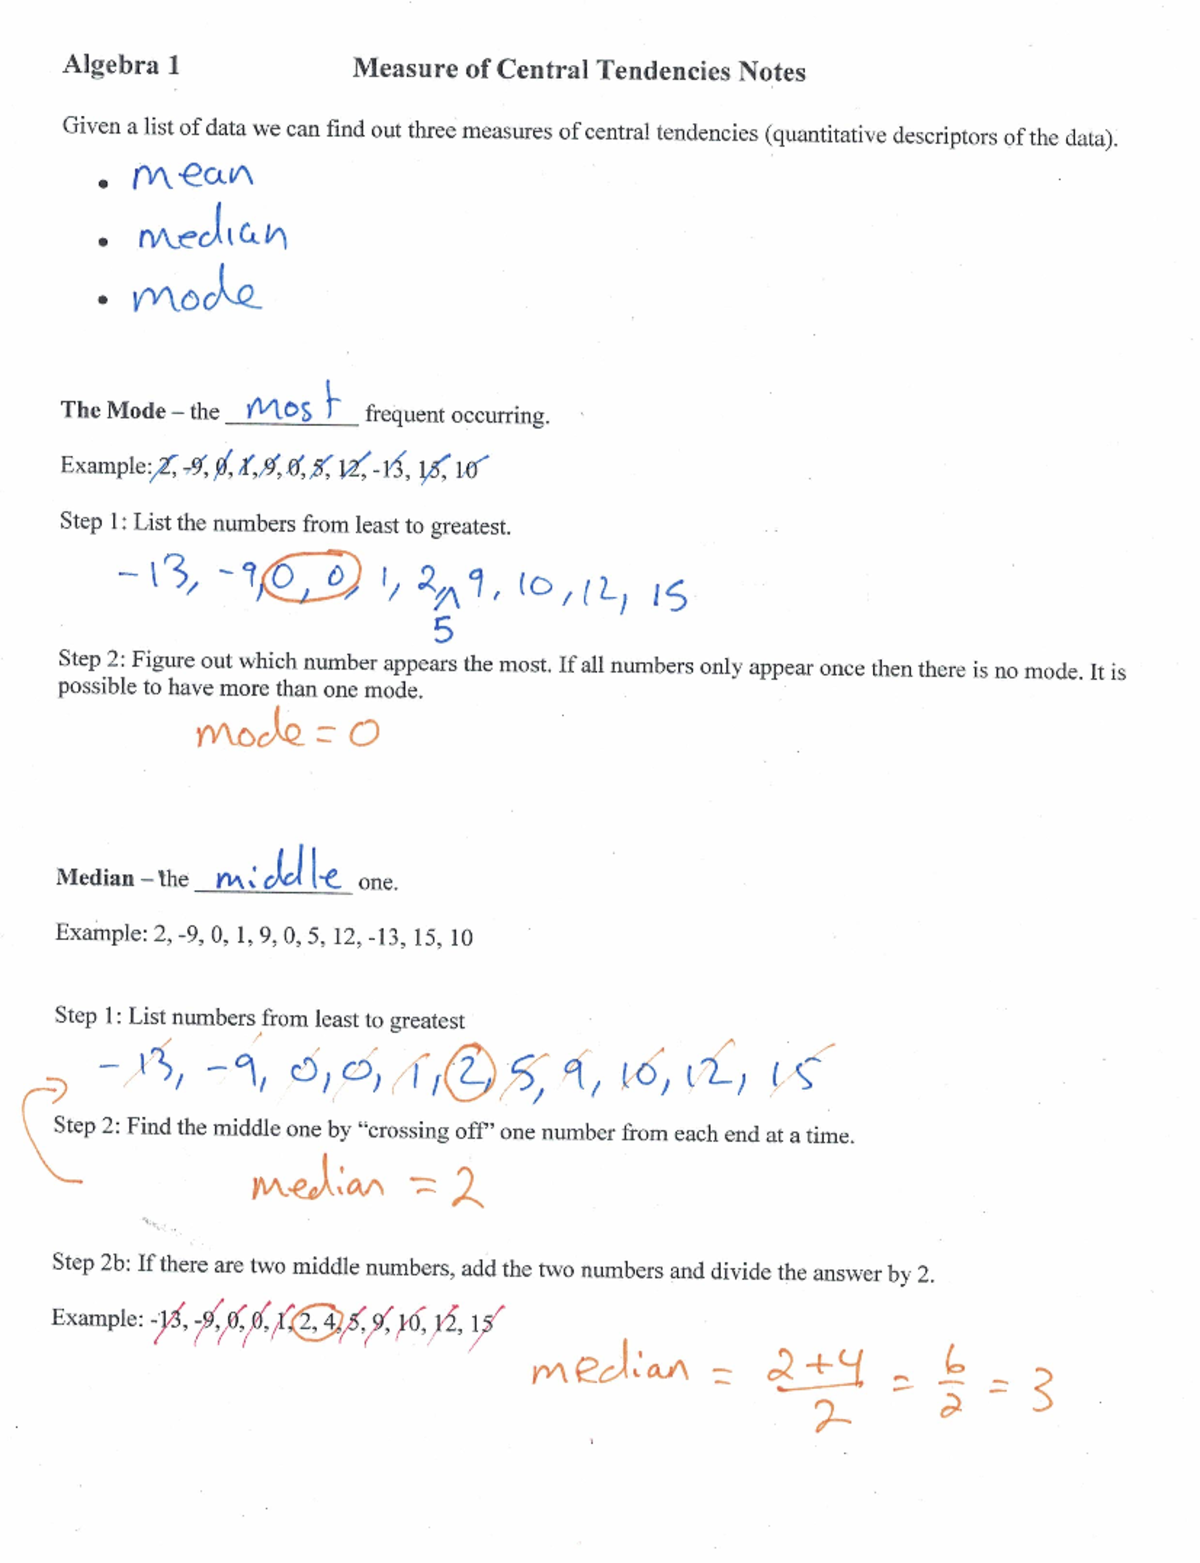 Algebra 1 Measure of Central Tendencies Notes
Given a list of data we can find out three measures of central tendencies (quantitative descriptors of the data).
• mean
• median
• mode
The Mode – the most frequent occurring.
Example: 2, -9, 0, 1, 9, 0, 5, 12, -13, 15, 10
Step 1: List the numbers from least to greatest.
-13, -9, 0, 0, 1, 2, ^ 9, 10, 12, 15
5
Step 2: Figure out which number appears the most. If all numbers only appear once then there is no mode. It is
possible to have more than one mode.
mode = 0
Median – the middle one.
Example: 2, -9, 0, 1, 9, 0, 5, 12, -13, 15, 10
Step 1: List numbers from least to greatest
-13, -9, 0, 0, 1, 2, 5, 9, 10, 12, 15
Step 2: Find the middle one by “crossing off” one number from each end at a time.
median = 2
Step 2b: If there are two middle numbers, add the two numbers and divide the answer by 2.
Example: -13, -9, 0, 0, 1, 2, 4, 5, 9, 10, 12, 15
median = 2+4/2 = 6/2 = 3